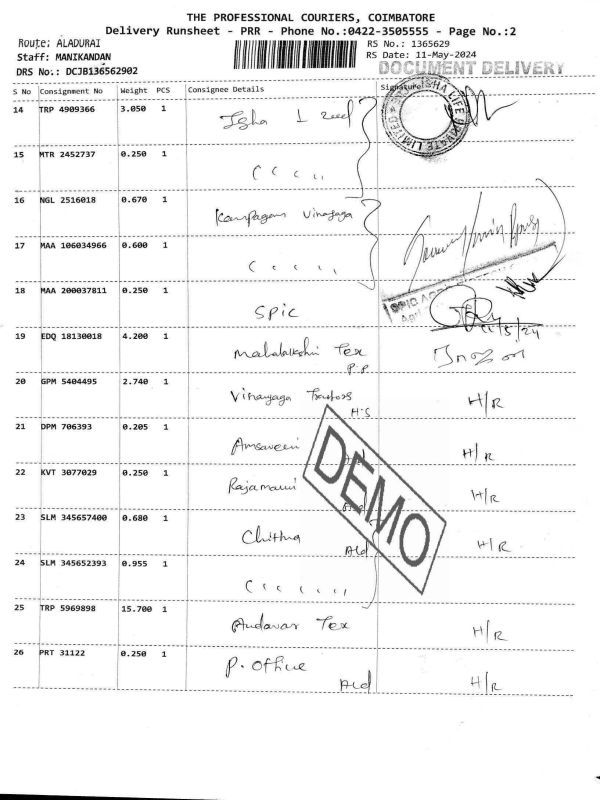 THE PROFESSIONAL COURIERS, COIMBATORE
Delivery Runsheet - PRR - Phone No.:0422-3505555 - Page No.:2
Route: ALADURAI
RS No.: 1365629
Staff: MANIKANDAN
RS Date: 11-May-2024
DRS No.: DCJB136562902
DOCUMENT DELIVERY
S No Consignment No Weight PCS Consignee Details Signature
14 TRP 4909366 3.050 1 Isha
15 MTR 2452737 0.250 1
16 NGL 2516018 0.670 1 Vinayaga
17 MAA 106034966 0.600 1
18 MAA 200037811 0.250 1 SPIC
SPIC
11/5/24
19 EDQ 18130018 4.200 1 Tex
P.P
20 GPM 5404495 2.740 1 Vinayaga H/R
H.S
21 DPM 706393 0.205 1 Amsaveni H/R
22 KVT 3077029 0.250 1 Rajamani H/R
DEMO
23 SLM 345657400 0.680 1 Chithra H/R
Ald
24 SLM 345652393 0.955 1
25 TRP 5969898 15.700 1 Andavar Tex H/R
26 PRT 31122 0.250 1 P. Office H/R
Ald